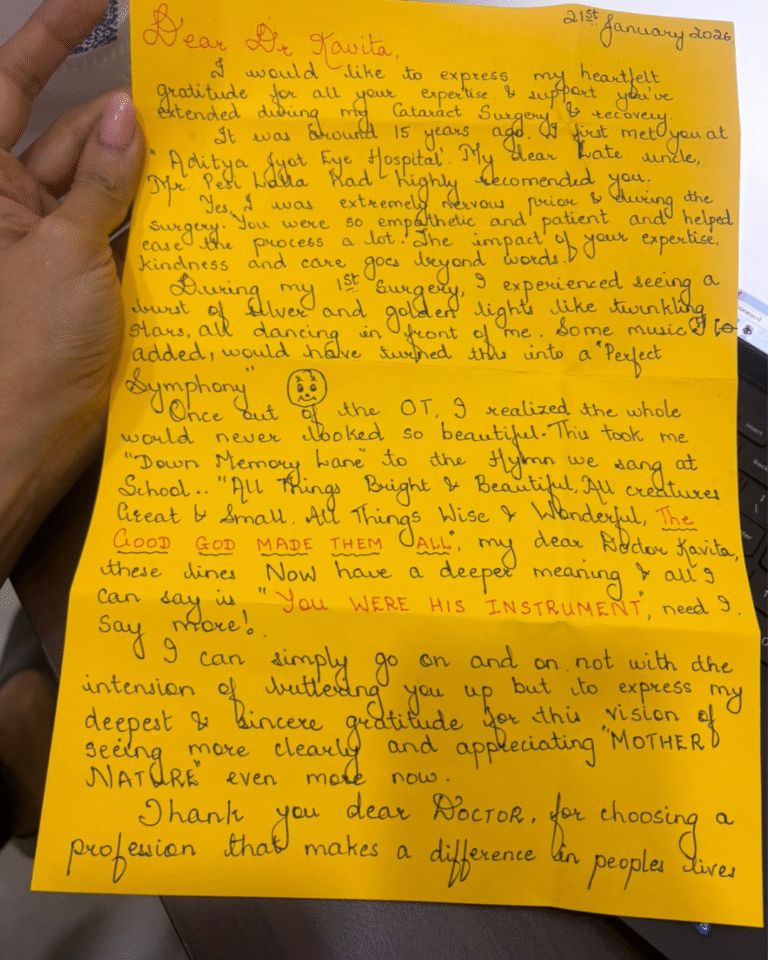 21st January 2026.
Dear Dr Kavita,
I would like to express my heartfelt
gratitude for all your expertise & support you've
extended during my Cataract Surgery & recovery.
It was around 15 years ago, I first met you at
"Aditya Jyot Eye Hospital". My dear Late uncle,
Mr. Pesi Walla had highly recomended you.
Yes, I was extremely nervous prior & during the
surgery. You were so empathetic and patient and helped
ease the process a lot. The impact of your expertise,
kindness and care goes beyond words.
During my 1st Surgery, I experienced seeing a
burst of silver and golden lights like twinkling
stars, all dancing in front of me. Some music
added, would have turned this into a "Perfect
Symphony"
Once out of the OT, I realized the whole
world never looked so beautiful. This took me
"Down Memory Lane" to the Hymn we sang at
School.. "All Things Bright & Beautiful, All creatures
Great & Small. All Things Wise & Wonderful, The
GOOD GOD MADE THEM ALL", my dear Doctor Kavita,
these lines Now have a deeper meaning & all I
can say is "YOU WERE HIS INSTRUMENT", need I
say more!
I can simply go on and on not with the
intension of buttering you up but to express my
deepest & sincere gratitude for this vision of
seeing more clearly and appreciating "MOTHER
NATURE" even more now.
Thank you dear DOCTOR, for choosing a
profession that makes a difference in peoples lives